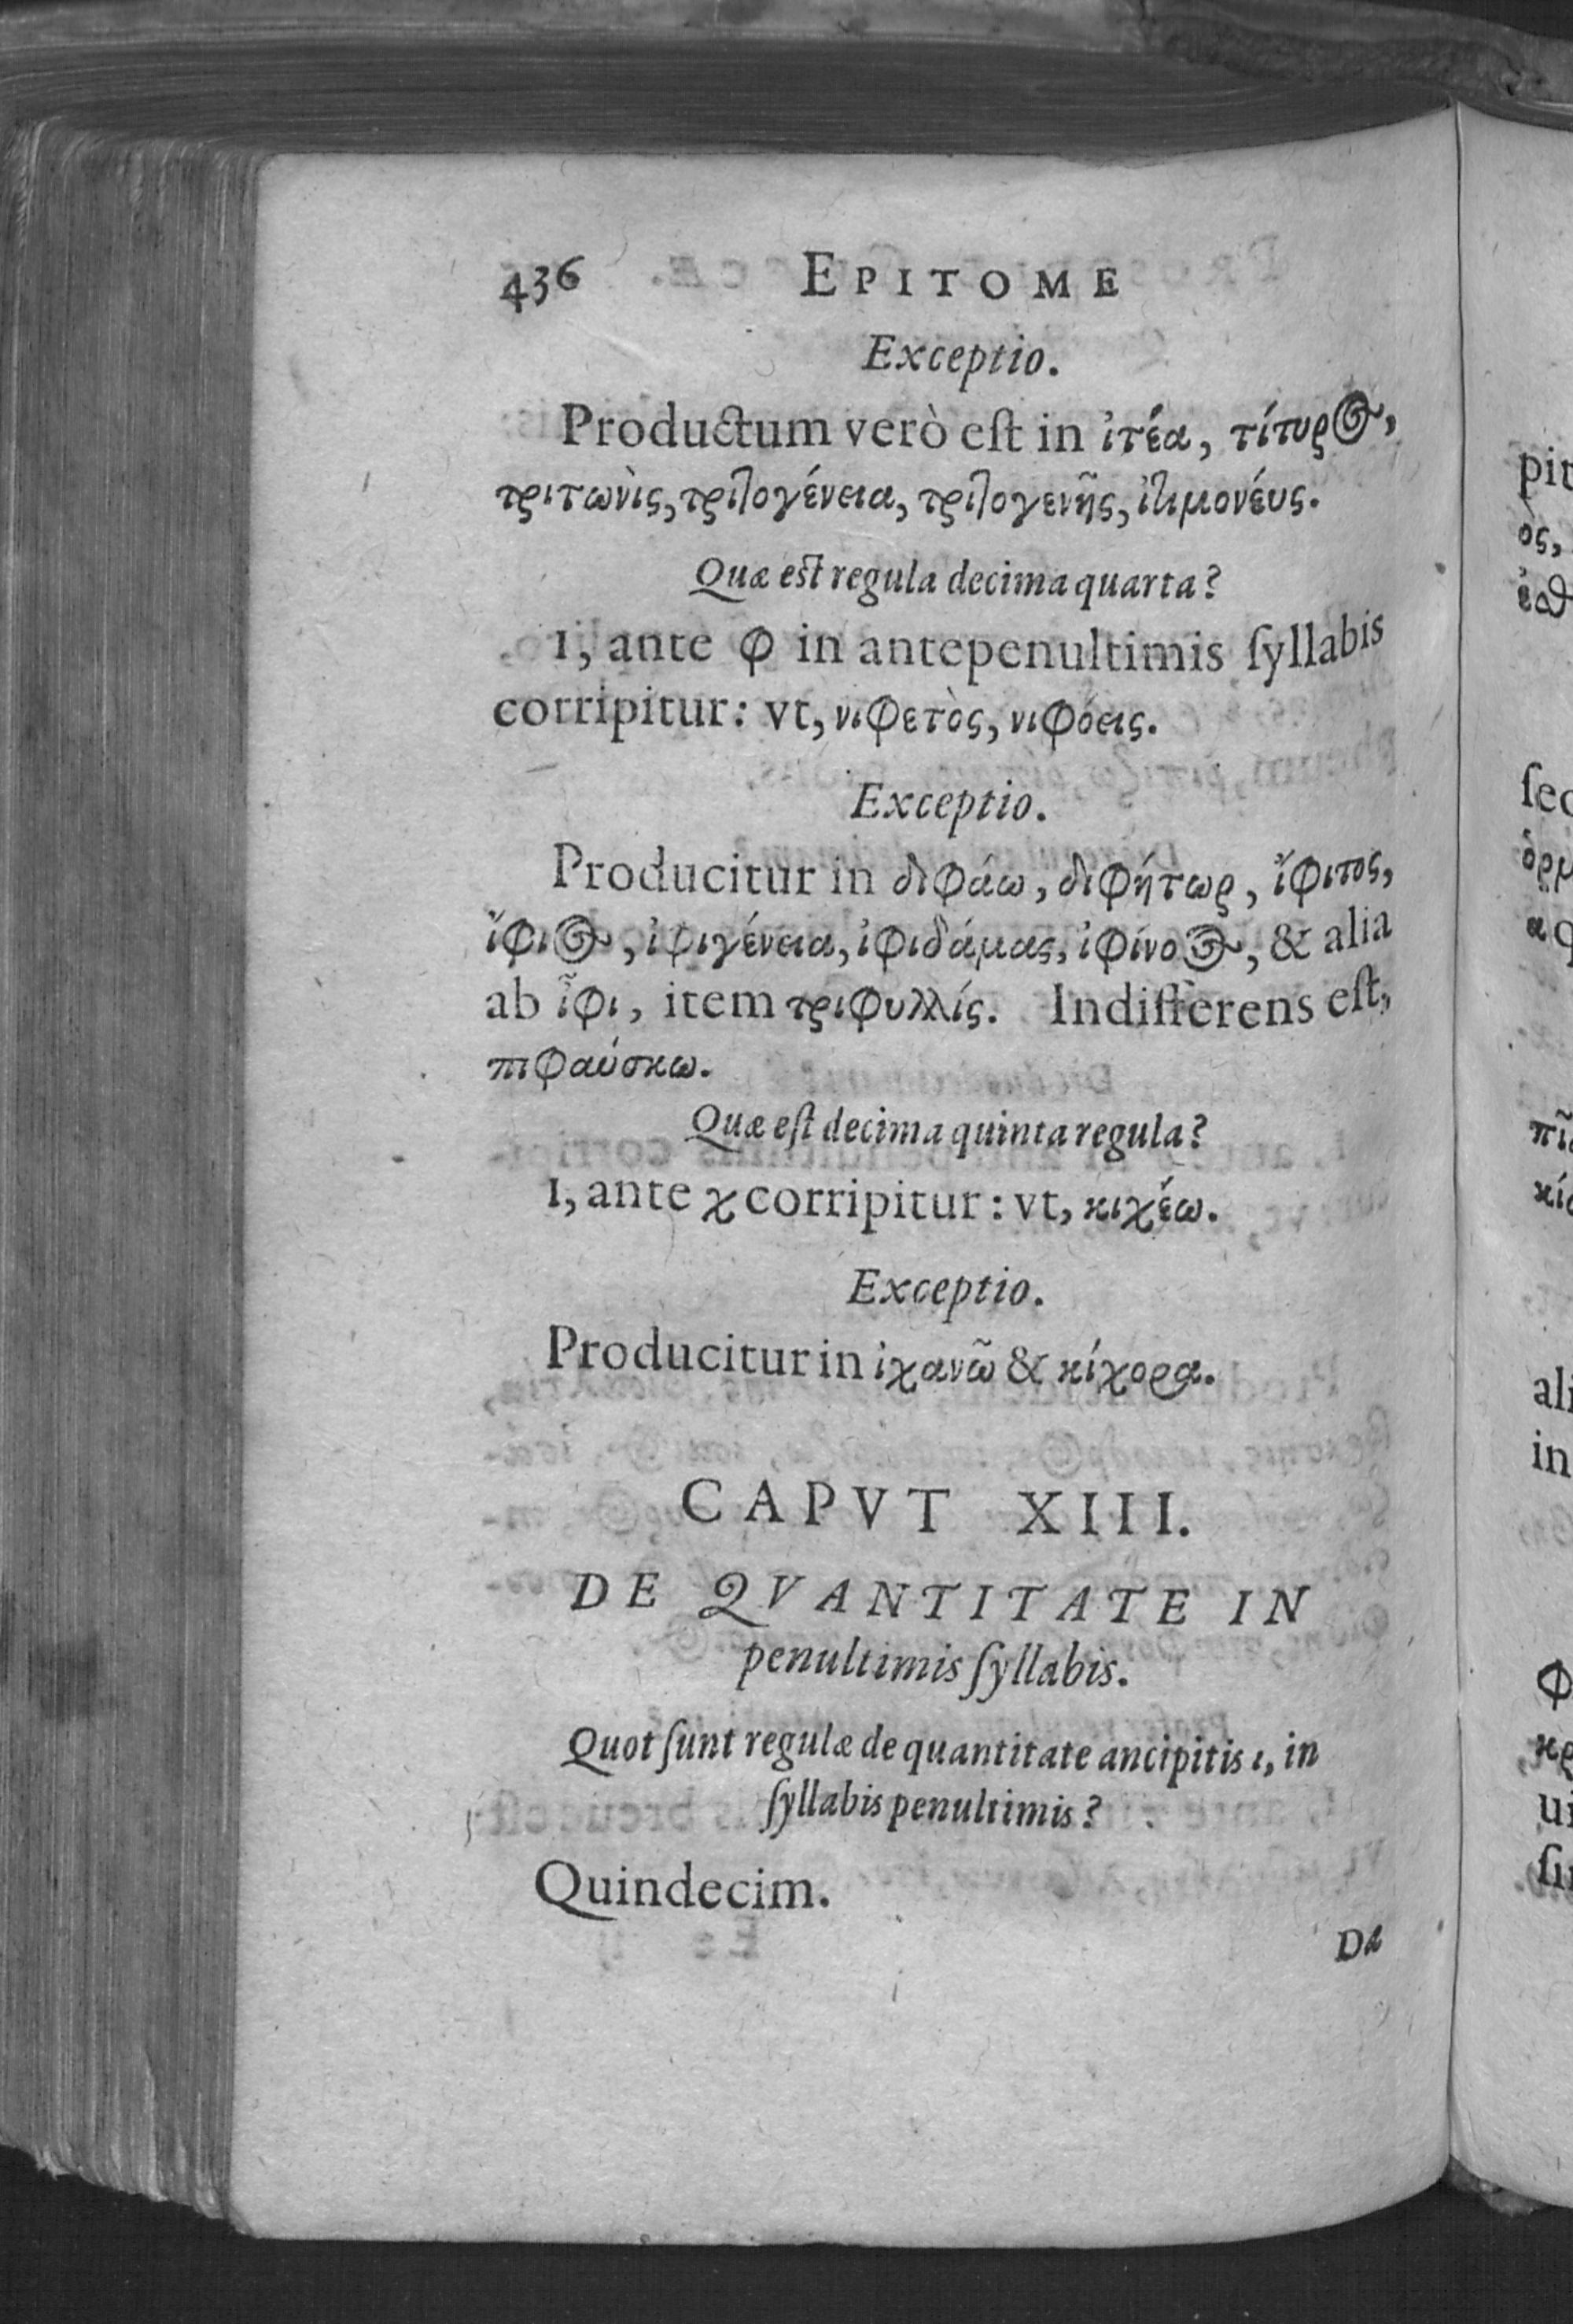 436 EPITOME
Exceptio.
Productum verò eſt in ἰτέα, τίτυρος,
τριτωνὶς, τριτογένεια, τριτογενῆς, ἰτιμονέυς.
Quæ est regula decima quarta?
I, ante φ in antepenultimis ſyllabis
corripitur: vt, νιφετὸς, νιφόεις.
Exceptio.
Producitur in διφάω, διφήτωρ, ἴφιτος,
ἴφιος, ἰφιγένεια, ἰφιδάμας, ἰφίνοος, & alia
ab ἶφι, item τριφυλλίς. Indifferens eſt,
πιφαύσκω.
Quæ eſt decima quinta regula?
I, ante χ corripitur: vt, κιχέω.
Exceptio.
Producitur in ἰχανῶ & κίχορα.
CAPVT XIII.
DE QVANTITATE IN
penultimis ſyllabis.
Quot ſunt regulæ de quantitate ancipitis ι, in
ſyllabis penultimis?
Quindecim.
Da
pit
ὸς,
ſec
ὁρμ
πῖ
κί
ali
in
φ
κρ
ui
ſu